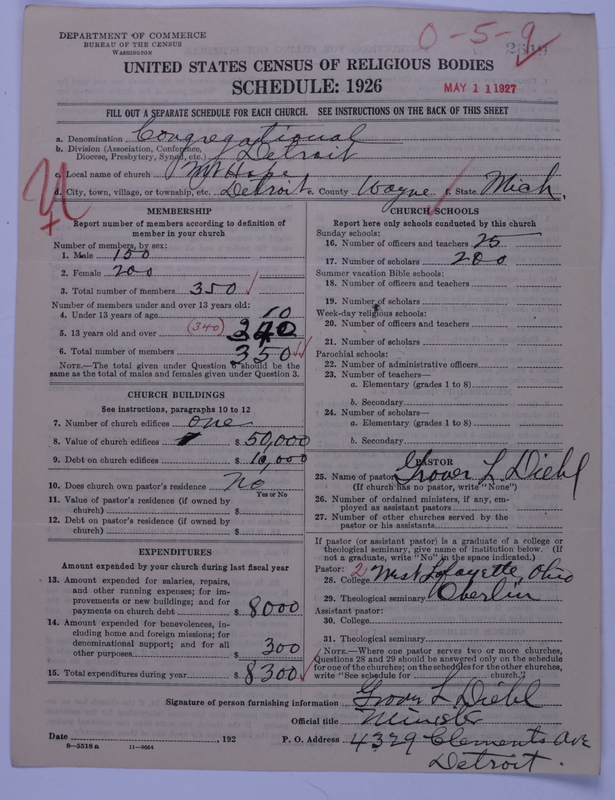 DEPARTMENT OF COMMERCE
BUREAU OF THE CENSUS
WASHINGTON
0-5-9
2609
UNITED STATES CENSUS OF RELIGIOUS BODIES
SCHEDULE: 1926
MAY 11 1927
FILL OUT A SEPARATE SCHEDULE FOR EACH CHURCH. SEE INSTRUCTIONS ON THE BACK OF THIS SHEET
a. Denomination Congregational
b. Division (Association, Conference, Diocese, Presbytery, Synod, etc.) Detroit
c. Local name of church Mt Hope
d. City, town, village, or township, etc. Detroit e. County Wayne f. State Mich.
MEMBERSHIP
Report number of members according to definition of member in your church
Number of members, by sex:
1. Male 150
2. Female 200
3. Total number of members 350
Number of members under and over 13 years old:
4. Under 13 years of age 10
5. 13 years old and over (340) 340
6. Total number of members 350
NOTE.—The total given under Question 6 should be the same as the total of males and females given under Question 3.
CHURCH BUILDINGS
See instructions, paragraphs 10 to 12
7. Number of church edifices one
8. Value of church edifices $ 50,000
9. Debt on church edifices $ 10,000
10. Does church own pastor's residence No
Yes or No
11. Value of pastor's residence (if owned by church) $
12. Debt on pastor's residence (if owned by church) $
EXPENDITURES
Amount expended by your church during last fiscal year
13. Amount expended for salaries, repairs, and other running expenses; for improvements or new buildings; and for payments on church debt $ 8000
14. Amount expended for benevolences, including home and foreign missions; for denominational support; and for all other purposes $ 300
15. Total expenditures during year $ 8300
CHURCH SCHOOLS
Report here only schools conducted by this church
Sunday schools:
16. Number of officers and teachers 25
17. Number of scholars 200
Summer vacation Bible schools:
18. Number of officers and teachers
19. Number of scholars
Week-day religious schools:
20. Number of officers and teachers
21. Number of scholars
Parochial schools:
22. Number of administrative officers
23. Number of teachers—
a. Elementary (grades 1 to 8)
b. Secondary
24. Number of scholars—
a. Elementary (grades 1 to 8)
b. Secondary
PASTOR
25. Name of pastor Grover L. Diehl
(If church has no pastor, write "None")
26. Number of ordained ministers, if any, employed as assistant pastors
27. Number of other churches served by the pastor or his assistants
If pastor (or assistant pastor) is a graduate of a college or theological seminary, give name of institution below. (If not a graduate, write "No" in the space indicated.)
Pastor: 2
28. College West Lafayette, Ohio
29. Theological seminary Oberlin
Assistant pastor:
30. College
31. Theological seminary
NOTE.—Where one pastor serves two or more churches, Questions 28 and 29 should be answered only on the schedule for one of the churches; on the schedules for the other churches, write "See schedule for church."
Signature of person furnishing information Grover L Diehl
Official title Minister
Date , 192
P. O. Address 4329 Clements Ave
Detroit.
8—5518 a 11—9054